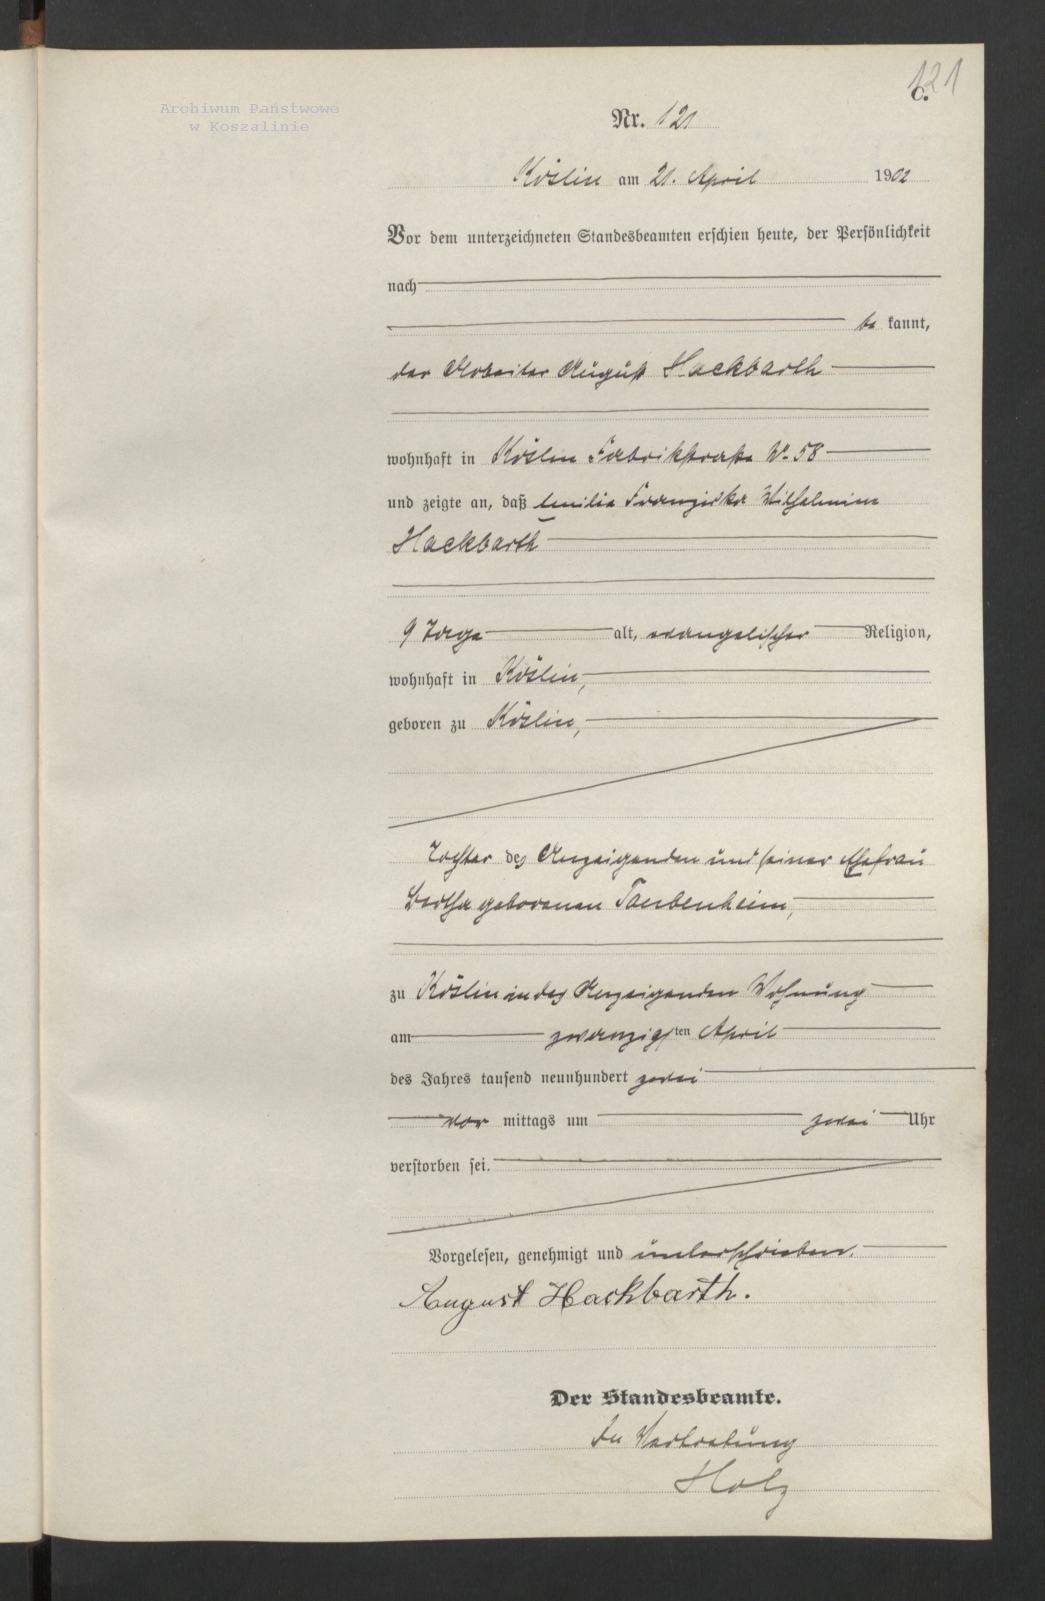 121
C.
Archiwum Państwowe
w Koszalinie
Nr. 121
Köslin am 21. April 1902
Vor dem unterzeichneten Standesbeamten erschien heute, der Persönlichkeit
nach
be kannt,
der Arbeiter August Hackbarth
wohnhaft in Köslin Fabrikstraße No 58
und zeigte an, daß Emilie Franziska Wilhelmine
Hackbarth
9 Tage alt, evangelischer Religion,
wohnhaft in Köslin,
geboren zu Köslin,
Tochter des Anzeigenden und seiner Ehefrau
Bertha geborenen Taubenheim,
zu Köslin in des Anzeigenden Wohnung
am zwanzigsten April
des Jahres tausend neunhundert zwei
vor mittags um zwei Uhr
verstorben sei.
Vorgelesen, genehmigt und unterschrieben.
August Hackbarth.
Der Standesbeamte.
In Vertretung
Holz